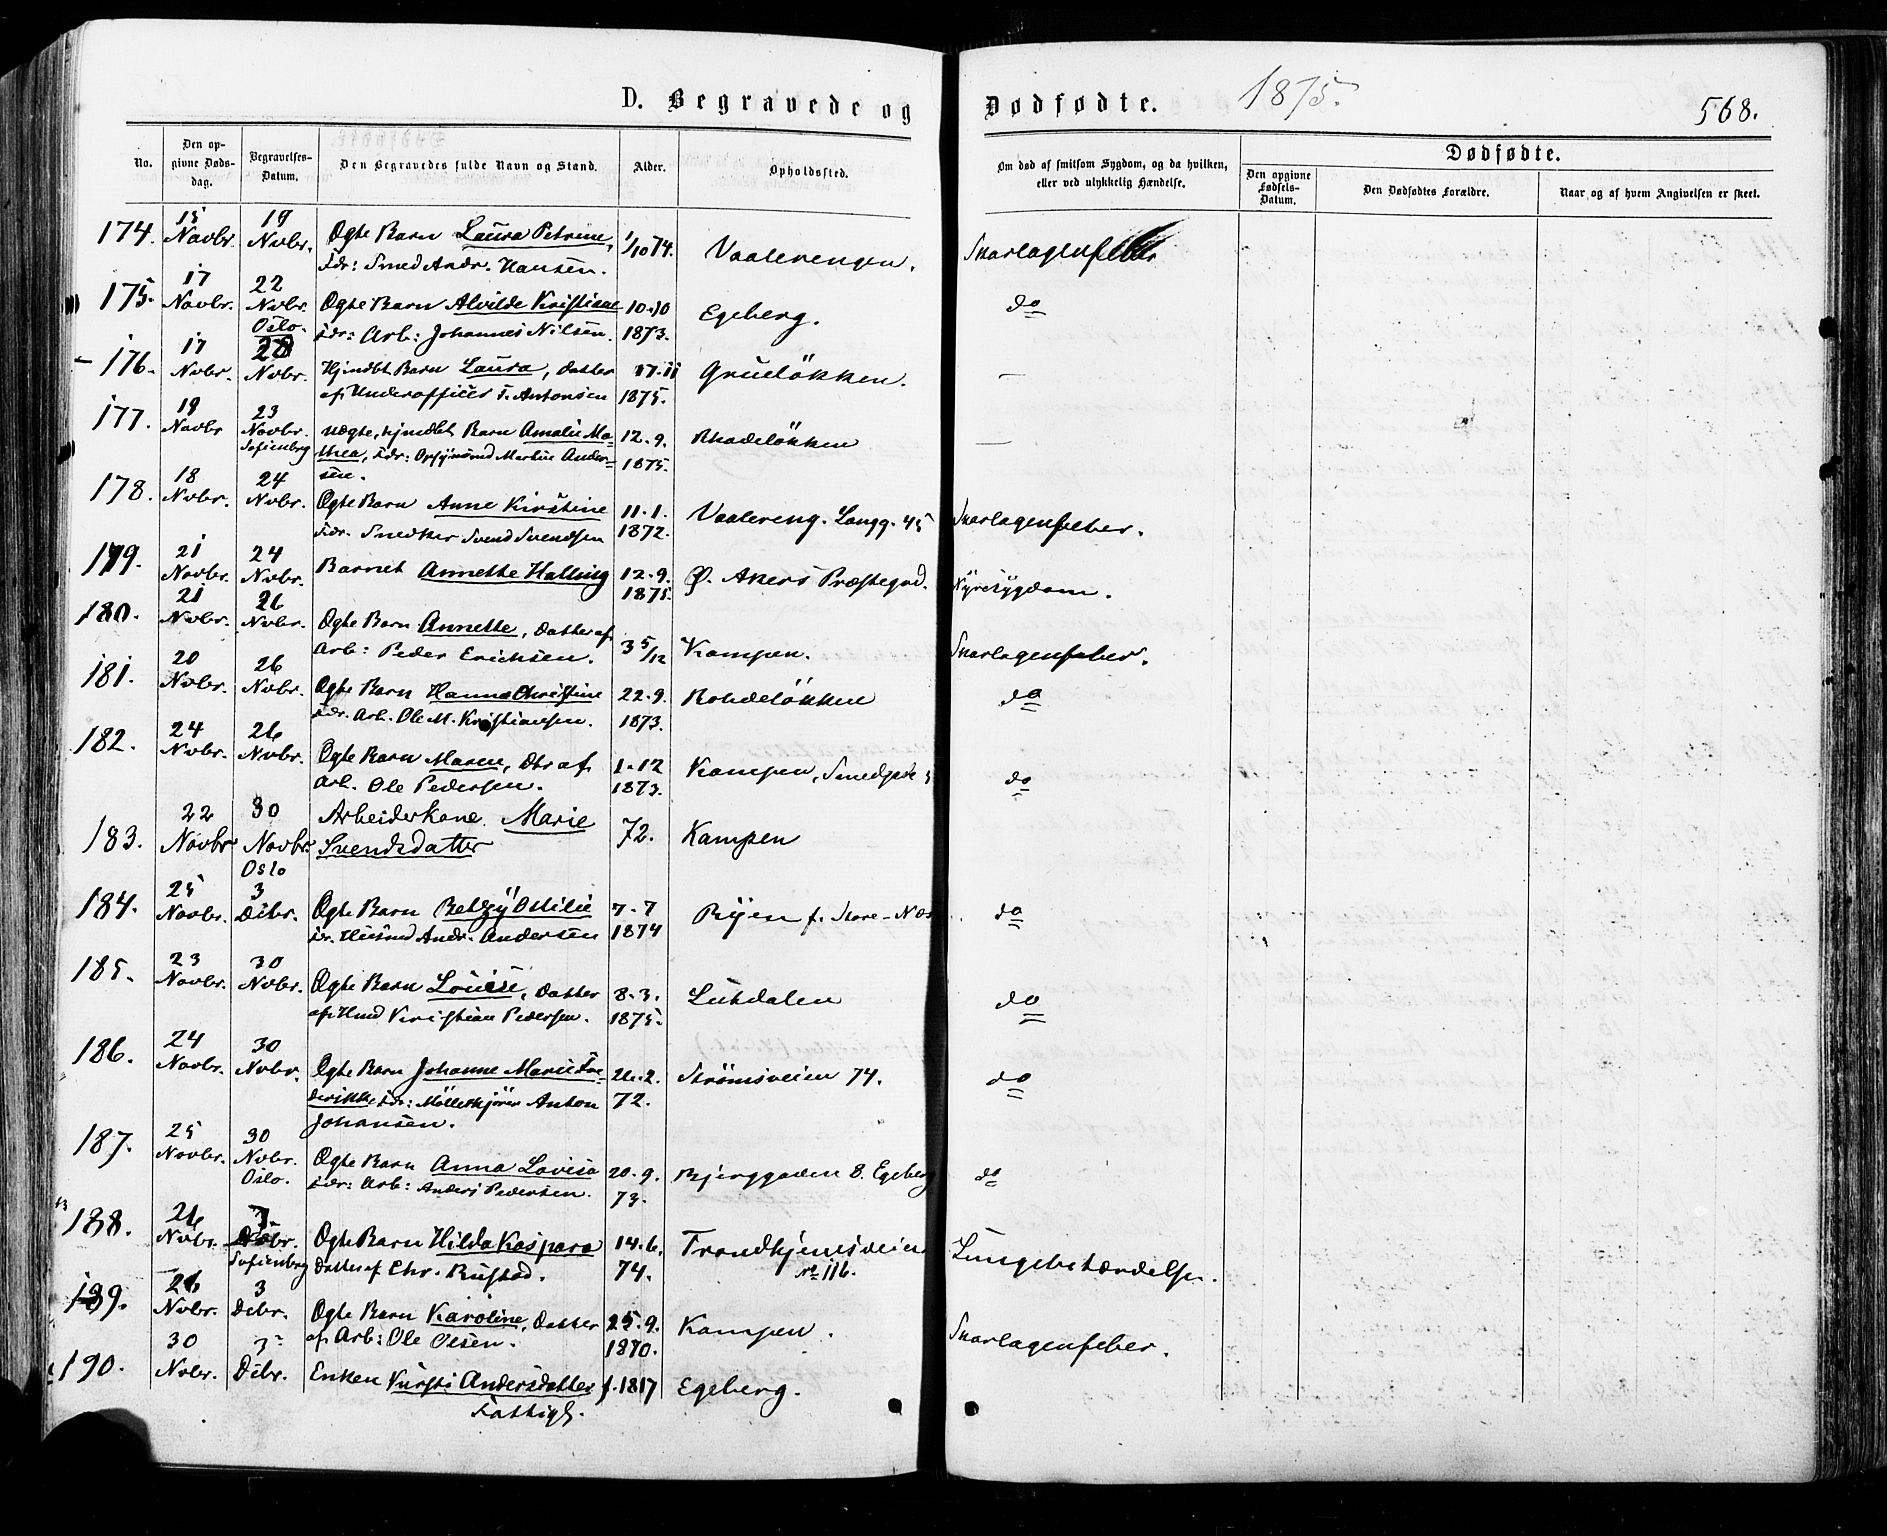 D. Begravede og Dødfødte. 1875. 568.
No.
Den opgivne Dødsdag.
Begravelses-Datum.
Den Begravedes fulde Navn og Stand.
Alder.
Opholdssted.
Om død af smitsom Sygdom, og da hvilken, eller ved ulykkelig Hændelse.
Dødfødte.
Den opgivne Fødsels-Datum.
Den Dødfødtes Forældre.
Naar og af hvem Angivelsen er skeet.
174. 15 Novbr. 19 Nvbr. Ægte Barn Laura Petrine, 1/10 74. Vaalerengen. Skarlagenfeber
Fdr: Smed Andr. Hansen.
175. 17 Novbr. 22 Nvbr. Oslo. Ægte Barn Alvilde Kristine 10-10 1873. Egeberg. do
Fdr: Arb: Johannes Nilsen.
176. 17 Nvbr. Nvbr. Hjmdbt Barn Laura, Datter 17-11 1875. Grüeløkken. —
af Underofficer T. Antonsen
177. 19 Novbr 23 Novbr. Sofienberg Uægte, hjmdbt Barn Amalie Ma- 12-9. 1875. Rhodeløkken —
thea, Fdr: Opsynsmd Martin Ander-
sen.
178. 18 Nvbr. 24 Nvbr. Ægte Barn Anne Kirstine 11-1. 1872. Vaalereng. Langg. 45 Skarlagenfeber.
Fdr. Snedker Svend Svendsen
179. 21 Novbr. 24 Nvbr. Barnet Annette Halling 12-9. 1875. Ø. Akers Præstegrd. Nyresygdom.
180. 21 Nvbr. 26 Nvbr. Ægte Barn Annette, Datter af 3 5/12 Kampen. Skarlagenfeber.
Arb: Peder Erichsen.
181. 20 Nvbr. 26 Nvbr. Ægte Barn Hanna Christine 22-9. 1873. Rohdeløkken do
Fdr. Arb. Ole M. Kristiansen.
182. 24 Nvbr. 26 Nvbr. Ægte Barn Maren, Dtr af 1-12 1873. Kampen, Smedgade do
Arb. Ole Pedersen.
183. 22 Novbr 30 Novbr. Oslo Arbeiderkone Marie 72. Kampen
Svendsdatter
184. 25 Novbr. 3 Debr. Ægte Barn Betzy Ottilie 7-7 1874 Ryen f. Store-Næs do
Fdr. Husmd Andr. Andersen
185. 23 Novbr. 30 Nvbr. Ægte Barn Louise, Datter 8-3. 1875. Lutdalen do
af Hmd Kristian Pedersen.
186. 24 Novbr. 30 Nvbr. Ægte Barn Johanne Marie Fre- 26-2. 72. Strømsveien 74. do
derikke, Fdr: Møllekjører Anton
Johansen.
187. 25 Novbr. 30 Nvbr. Oslo. Ægte Barn Anna Lovisa 20-9. 73. Bjerggaden 8. Egeberg do
Fdr: Arb: Anders Pedersen.
188. 26 Nvbr. Sofienberg Ægte Barn Hilda Kaspara 14-6. 74. Trondhjemsveien No 116. Lungebetændelse.
Datter af Chr. Rustad.
189. 26 Nvbr. 3 Debr. Ægte Barn Karoline, Datter 25-9. 1870. Kampen. Skarlagenfeber.
af Arb: Ole Olsen.
190. 30 Nvbr. 3 Debr. Enken Kirsti Andersdatter f. 1817 Egeberg.
Fattigl.